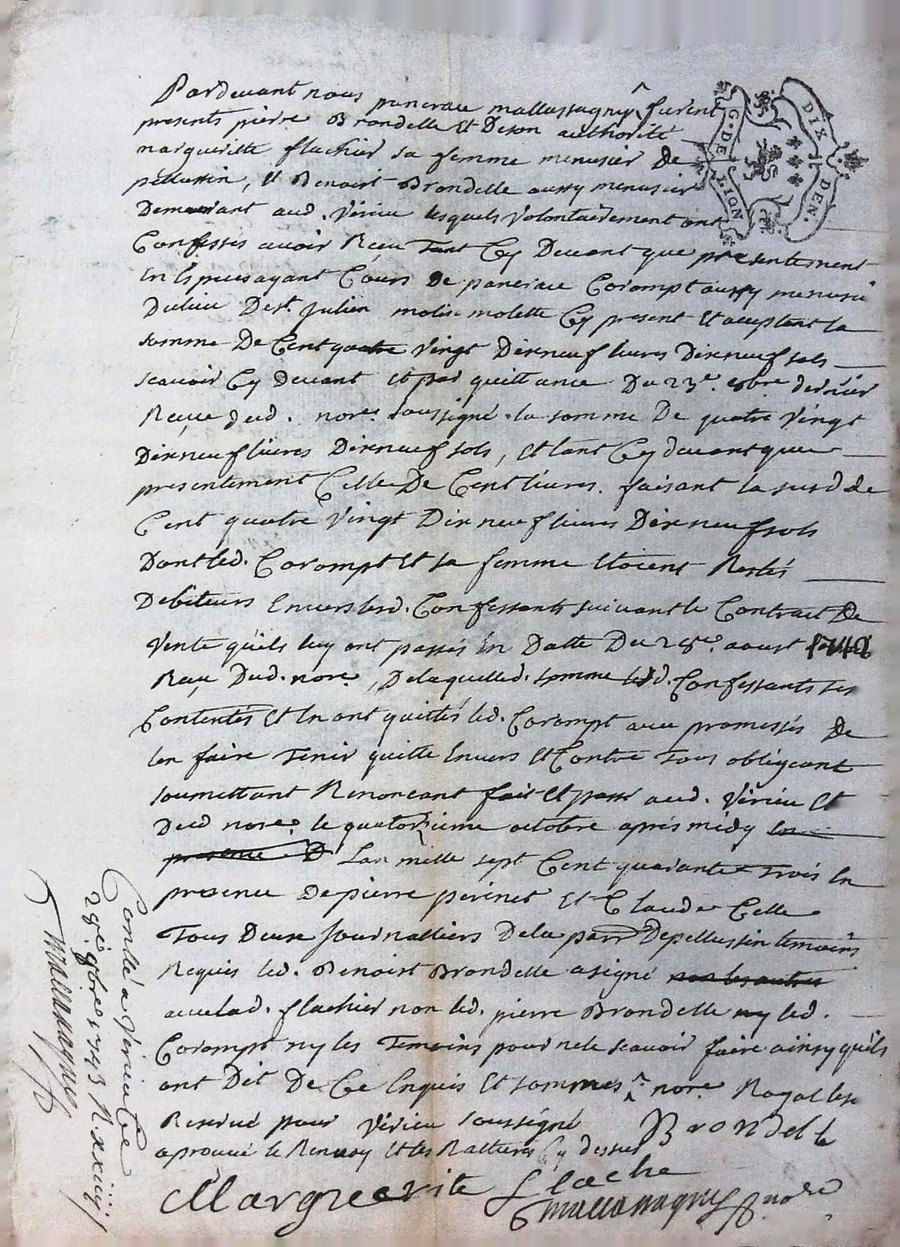 Pardevant nous pancrace mallassagny furent
presents pierre Brondelle Et De son authorité
margueritte flachier sa femme menusier De
pellussin, Et Benoist Brondelle aussy menusier
Demeurant aud. Virieu lesquels volontairement ont
Confessés avoir Reçu Tant Cy Devant que presentement
En Especes ayant Cours De pancrace Corompt aussy menusier
Dulieu De st. Julien molin molette Cy present Et aceptant la
somme De Cent quatre vingt Dix neuf livres Dix neuf sols
scavoir Cy Devant Et par quittance Du 23e. 8bre dernier
Reçue dud. nore. soussigné la somme De quatre vingt
Dix neuf livres Dix neuf sols, Et tant Cy devant que
presentement Celle De Cent livres. faisant la susd de
Cent quatre vingt Dix neuf livres Dix neuf sols
Dont led. Corompt Et sa femme Etoient Restés
Debiteurs Envers lesd. Confessants suivant le Contract De
Vente quils luy ont passés En Datte Du 28e. aoust 1742
Reçu Dud. nore., De laquelle d. somme lesd. Confessants se
Contentés Et En ont quittés led. Corompt avec promesses De
len faire Tenir quitte Envers Et Contre Tous obligeant
soumettant Renonceant fait Et passé aud. Virieu Et
Dud nore. le quatorzieme octobre après midy en
presence D Lan mille sept Cent quarante Trois En
presence De pierre perinet Et Claude Celle
Tous Deux Journalliers De la parr De pellussin temoins
Requis led. Benoist Brondelle a signé non les autres
avec lad. flachier non led. pierre Brondelle ny led.
Corompt ny les Temoins pour ne le scavoir faire ainsy quils
ont Dit De Ce Enquis Et sommés nore. Royal
Reservé pour Virieu soussigné
aprouvé le Renvoy Et les Ratures Cy dessus Brondelle
Marguerite flache
mallassagny nore
Conllé a Virieu Ce
28e. 8bre 1743 R. xxiiij s
mallassagny
G. DE
TION
DIX
DEN.